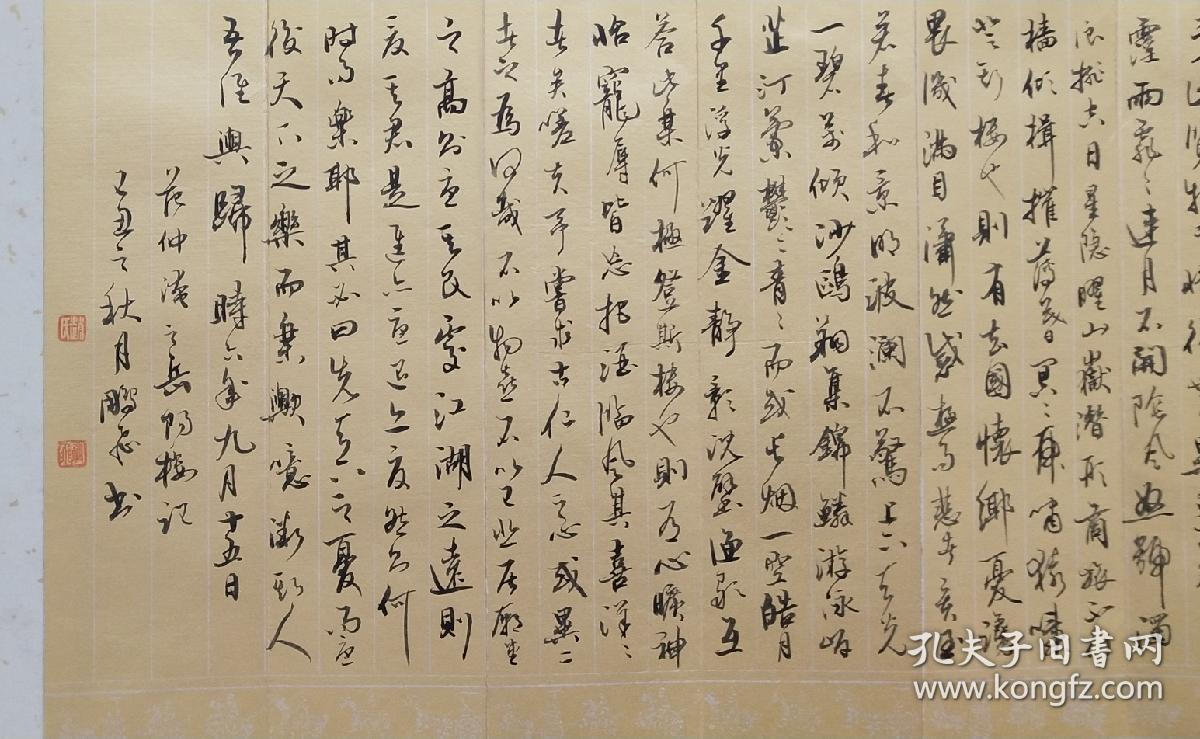 霪雨霏〻連月不開陰風怒號濁
浪排空日星隱曜山嶽潛形商旅不行
檣傾楫摧薄暮冥〻虎嘯猿啼
登斯樓也則有去國懷鄉憂讒
畏譏滿目蕭然感極而悲者矣至
若春和景明波瀾不驚上下天光
一碧萬頃沙鷗翔集錦鱗游泳岸
芷汀蘭鬱〻青〻而或長烟一空皓月
千里浮光躍金靜影沉璧漁歌互
答此樂何極登斯樓也則有心曠神
怡寵辱皆忘把酒臨風其喜洋〻
者矣嗟夫予嘗求古仁人之心或異二
者之為何哉不以物喜不以己悲居廟堂
之高則憂其民處江湖之遠則
憂其君是進亦憂退亦憂然則何
時而樂耶其必曰先天下之憂而憂
後天下之樂而樂歟噫微斯人
吾誰與歸 時六年九月十五日
范仲淹之岳陽樓記
己丑之秋月鵬飛書
孔夫子旧书网
www.kongfz.com